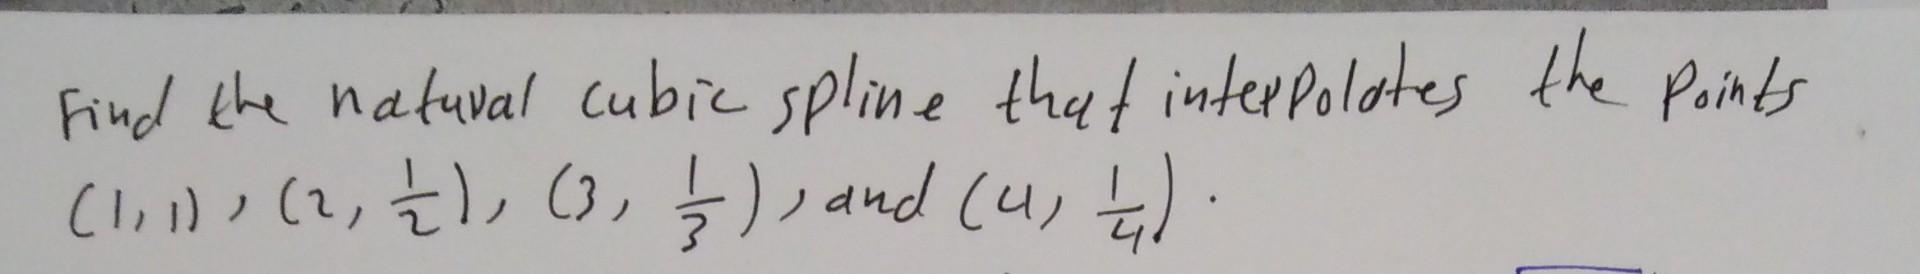 Find the natural cubic spline that interpolates the points
(1,1), (2, 1/2), (3, 1/3), and (4, 1/4).